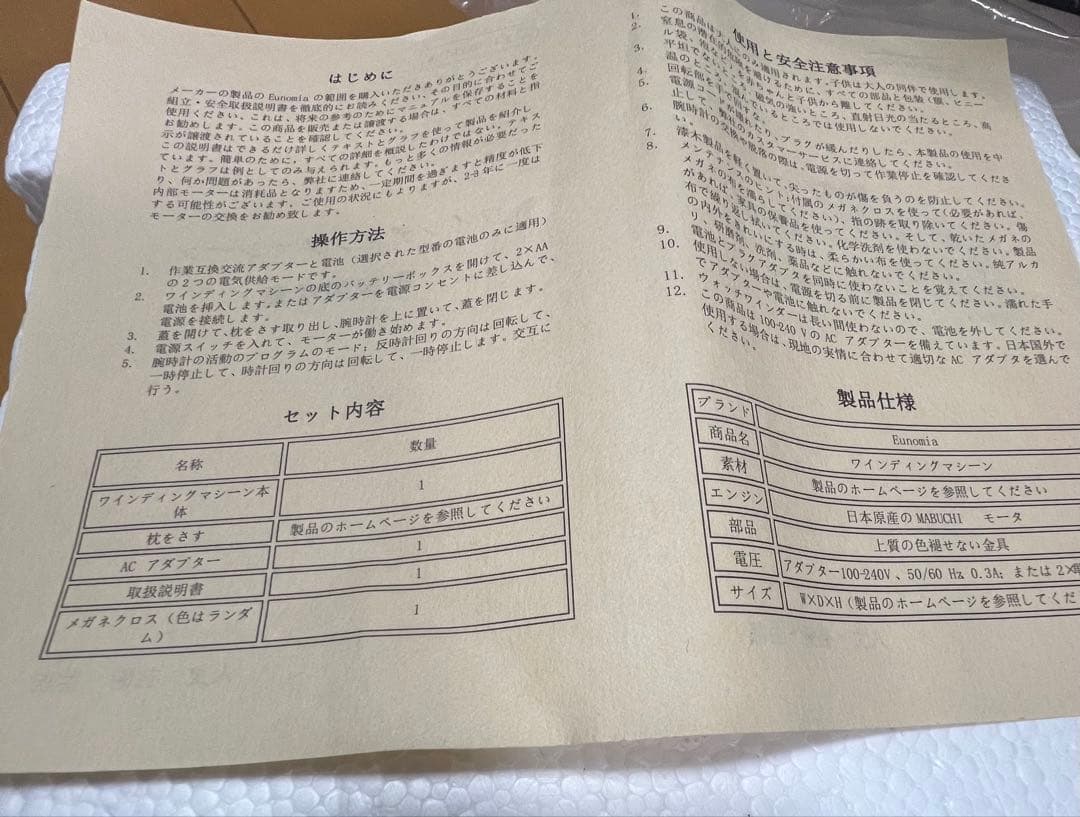 はじめに
メーカーの製品の Eunomia の範囲を購入いただきありがとうございます。
組立・安全取扱説明書を徹底的にお読みください、その目的に合わせてご
使用ください。これは、将来の参考のためにマニュアルを保存することを
お勧めします。この商品を販売または譲渡する場合は、すべての材料と指
示が譲渡されていることを確認してください。
この説明書はできるだけ詳しくテキストとグラフを使って製品を紹介し
ています。簡単のために、すべての詳細を概説したわけではない。テキス
トとグラフは例としてのみ与えられます。もっと多くの情報が必要だった
り、何か問題があったら、弊社に連絡してください。
内部モーターは消耗品となりますため、一定期間を過ぎますと精度が低下
する可能性がございます。ご使用の状況にもよりますが、2-3年に一度は
モーターの交換をお勧め致します。
操作方法
1. 作業互換交流アダプターと電池（選択された型番の電池のみに適用）
の2つの電気供給モードです。
2. ワインディングマシーンの底のバッテリーボックスを開けて、2×AA
電池を挿入します。またはアダプターを電源コンセントに差し込んで、
電源を接続します。
3. 蓋を開けて、枕をさす取り出し、腕時計を上に置いて、蓋を閉じます。
4. 電源スイッチを入れて、モーターが働き始めます。
5. 腕時計の活動のプログラムのモード：反時計回りの方向は回転して、
一時停止して、時計回りの方向は回転して、一時停止します。交互に
行う。
セット内容
名称 数量
ワインディングマシーン本
体 1
枕をさす 製品のホームページを参照してください
AC アダプター 1
取扱説明書 1
メガネクロス（色はランダ
ム） 1
使用と安全注意事項
1. この商品は大人にのみ適用されます。子供は大人の同伴で使用します。
2. 窒息の潜在的危険を避けるために、すべての部品と包装（膜、ビニー
ル袋、泡など）を赤ちゃんと子供から離してください。
3. 平坦でないところ、湿気の強いところ、直射日光の当たるところ、高
温のところ
ているところでは使用しないでください。
4. 回転部を
5. 電源コードが
れたり、プラグが緩んだりしたら、本製品の使用を中
止して、弊社のカスタマーサービスに連絡してください。
6. 腕時計の交換や
の際は、電源を切って作業停止を確認してくださ
い。
7. 漆木製品を軽く置いて、尖ったものが傷を負うのを防止してください。
8. メンテナンスのヒント：付属のメガネクロスを使って（必要があれば、
メガネの布を濡らしてください）、指の跡を取り除いてください。傷
があれば、家具の保養品を使ってください。そして、乾いたメガネの
布で繰り返し拭いてください。化学洗剤を使わないでください。製品
の内外をきれいにする時は、柔らかい布を使ってください。純アルカ
リ、研磨剤、洗剤、薬品などに触れないでください。
9. 電池とプラグアダプタを同時に使わないことを覚えてください。
10. 使用しない場合は、電源を切る前に製品を閉じてください。濡れた手
でアダプターや電池に触れないでください。
11. ウォッチワインダーは長い間使わないので、電池を外してください。
12. この商品は100-240 VのAC アダプターを備えています。日本国外で
使用する場合は、現地の実情に合わせて適切なAC アダプタを選んで
ください。
製品仕様
ブランド Eunomia
商品名 ワインディングマシーン
素材 製品のホームページを参照してください
エンジン 日本原産のMABUCHI モータ
部品 上質の色褪せない金具
電圧 アダプター100-240V、50/60 Hz 0.3A; または 2×
サイズ W×D×H（製品のホームページを参照してくだ